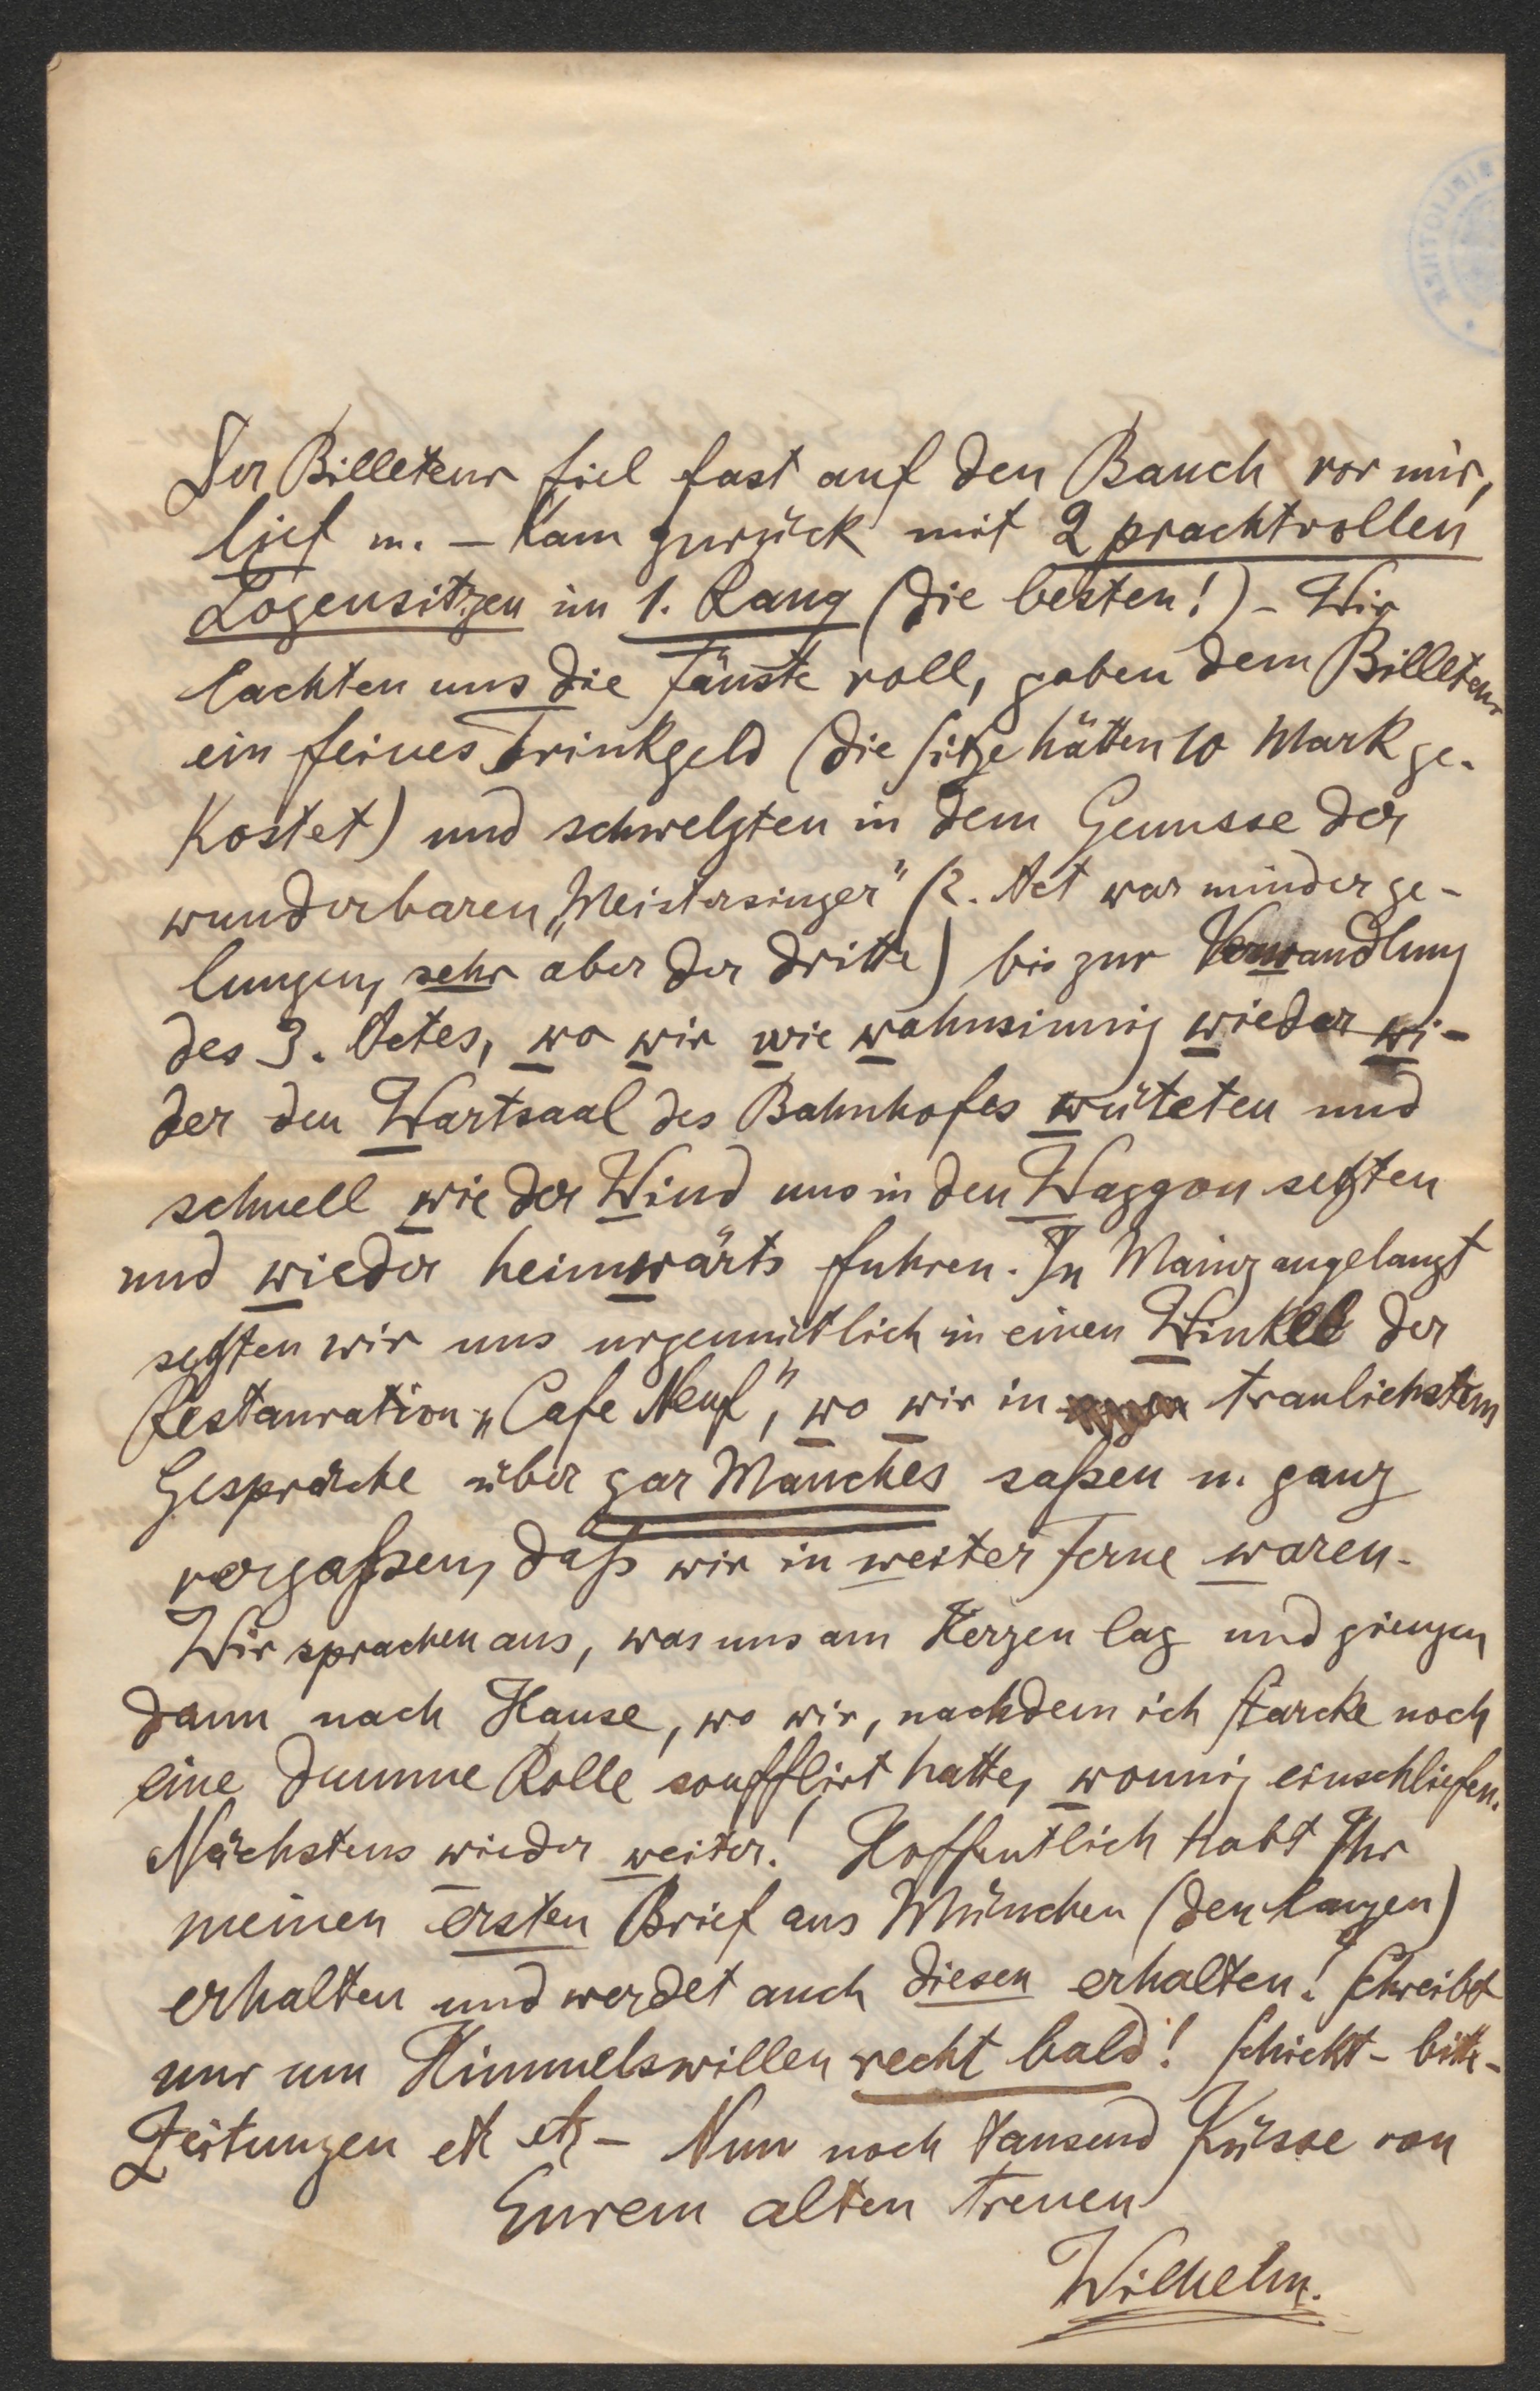 Der Billeteur fiel fast auf den Bauch vor mir,
lief u. – kam zurück mit 2 prachtvollen
Logensitzen im 1. Rang (die besten!) – Wir
lachten uns die Fäuste voll, gaben dem Billeteur
ein feines Trinkgeld (die Sitze hätten 10 Mark ge-
kostet) und schwelgten in dem Genusse der
wunderbaren „Meistersinger" (2. Act war minder ge-
lungen, sehr aber der dritte) bis zur Verwandlung
des 3. Actes, wo wir wie wahnsinnig wieder wi-
der den Wartsaal des Bahnhofes wüteten und
schnell wie der Wind uns in den Waggon setzten
und wieder heimwärts fuhren. In Mainz angelangt
setzten wir uns urgemütlich in einen Winkel der
Restauration „Cafe Neuf", wo wir in traulichstem
Gespräche über gar Manches saßen u. ganz
vergaßen, daß wir in weiter Ferne waren.
Wir sprachen aus, was uns am Herzen lag und giengen
dann nach Hause, wo wir, nachdem ich Starcke noch
eine dumme Rolle soufflirt hatte, wonnig einschliefen.
Nächstens wieder weiter! Hoffentlich habt Ihr
meinen ersten Brief aus München (den langen)
erhalten und werdet auch diesen erhalten! Schreibt
nur um Himmelswillen recht bald! Schickt – bitte –
Zeitungen etc etc – Nun noch tausend Küsse von
Eurem alten treuen
Wilhelm.
BIBLIOTHEK